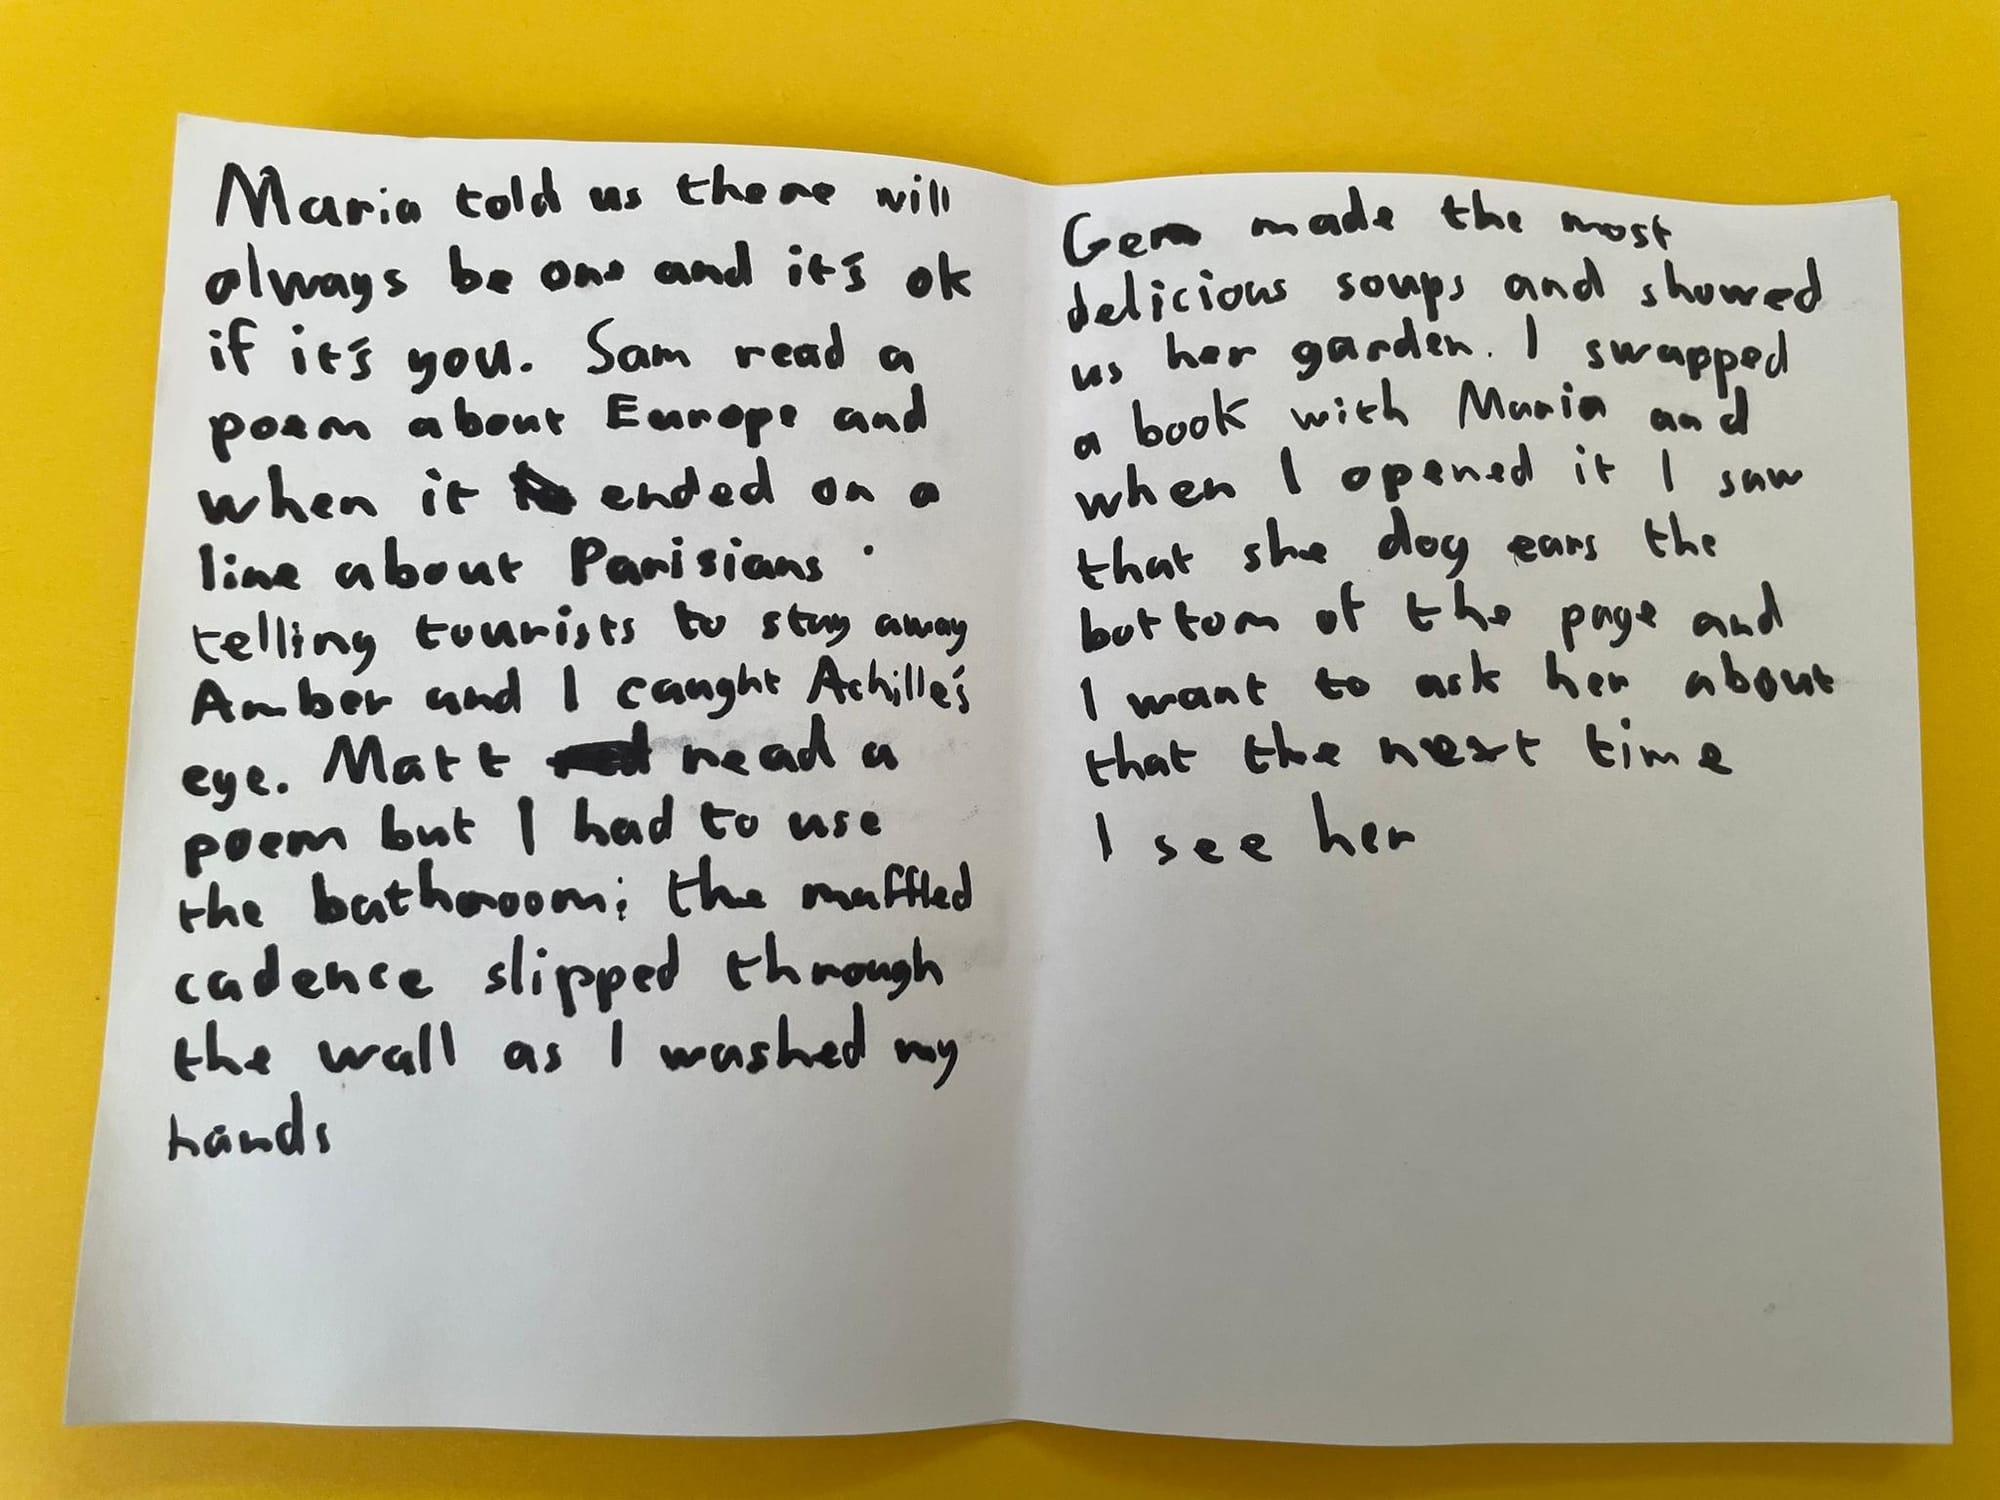 Maria told us there will
always be one and it's ok
if it's you. Sam read a
poem about Europe and
when it ended on a
line about Parisians
telling tourists to stay away
Amber and I caught Achille's
eye. Matt read a
poem but I had to use
the bathroom; the muffled
cadence slipped through
the wall as I washed my
hands
Gem made the most
delicious soups and showed
us her garden. I swapped
a book with Maria and
when I opened it I saw
that she dog ears the
bottom of the page and
I want to ask her about
that the next time
I see her